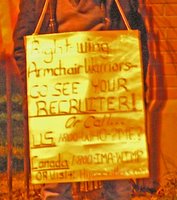 Right wing
Armchair Warriors-
GO SEE YOUR
RECRUITER!
Or Call...
US 1-800-WHO-?ME!
Canada 1-800-IMA-WIMP
OR VISIT: